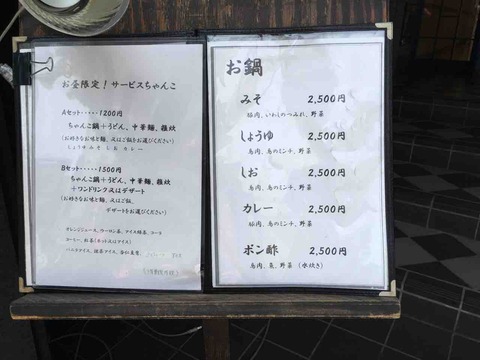 お昼限定！サービスちゃんこ
Aセット・・・・・1200円
ちゃんこ鍋＋うどん、中華麺、雑炊
(お好きなお味と麺、又はご飯をお選びください)
しょうゆ みそ しお カレー
Bセット・・・・・1500円
ちゃんこ鍋＋うどん、中華麺、雑炊
＋ワンドリンク又はデザート
(お好きなお味と麺、又はご飯、
デザートをお選びください)
オレンジジュース、ウーロン茶、アイス緑茶、コーラ
コーヒー、紅茶(ホット又はアイス)
バニラアイス、抹茶アイス、杏仁豆腐、
お鍋
みそ 2,500円
豚肉、いわしのつみれ、野菜
しょうゆ 2,500円
鳥肉、鳥のミンチ、野菜
しお 2,500円
鳥肉、鳥のミンチ、野菜
カレー 2,500円
豚肉、鳥のミンチ、野菜
ポン酢 2,500円
鳥肉、魚、野菜 (水炊き)